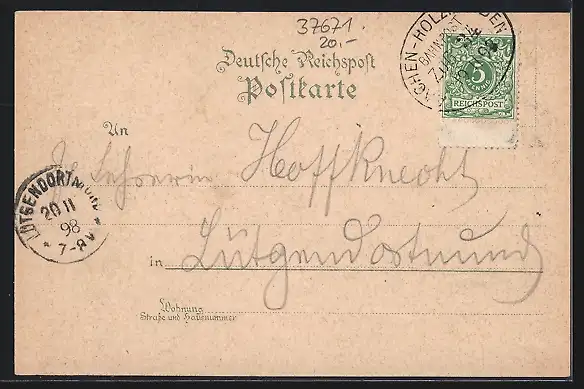 37671
20,-
Deutsche Reichspost
Postkarte
BAHNPOST
ZUG
5
REICHSPOST
An
Lehrerin Hoffknecht
LÜTGENDORTMUND
20 11
98
* 7-8V *
in Lütgendortmund
Wohnung
Straße und Hausnummer